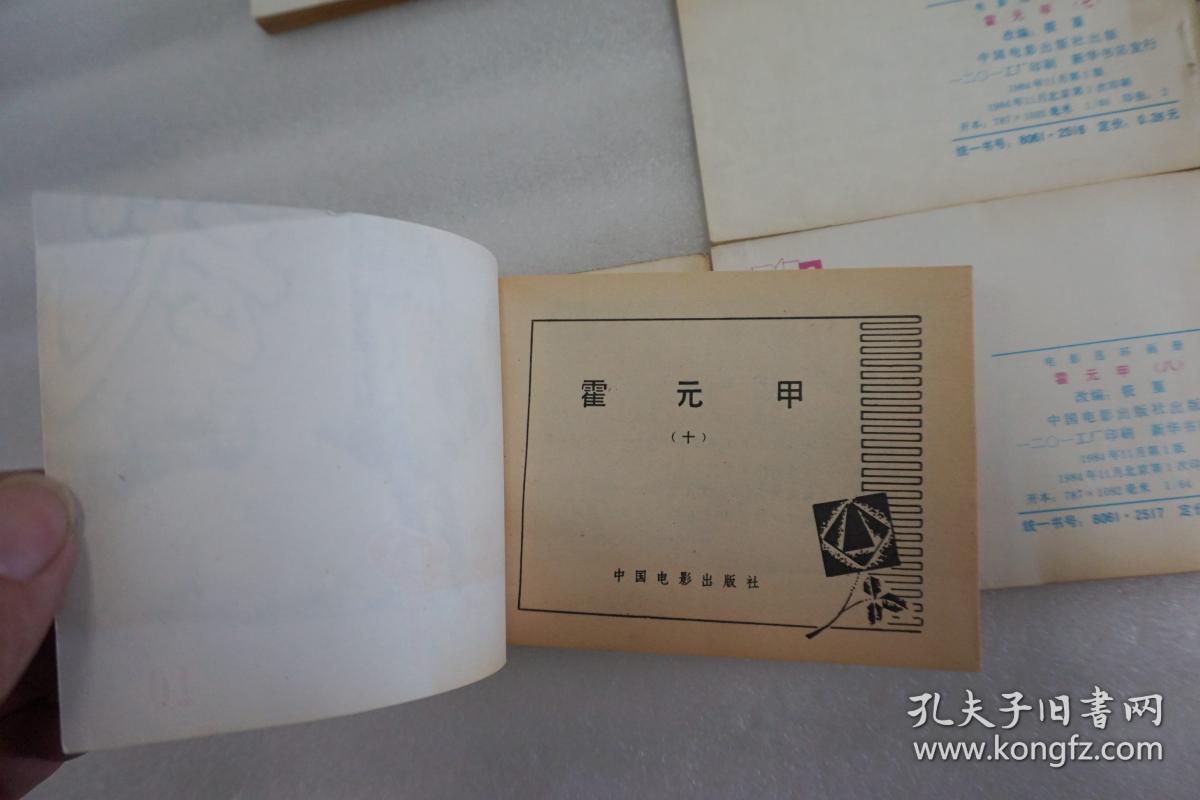 霍元甲（七）
改编：筱堇
中国电影出版社出版
一二〇一工厂印刷 新华书店发行
1984年11月第1版
1984年11月北京第1次印刷
开本：787×1092毫米 1/64 印张：2
统一书号：8061·2516 定价：0.28元
电影连环画册
霍元甲（八）
改编：筱堇
中国电影出版社出版
一二〇一工厂印刷 新华书店
1984年11月第1版
1984年11月北京第1次印
开本：787×1092毫米 1/64
统一书号：8061·2517 定价
霍元甲
（十）
中国电影出版社
10
孔夫子旧书网
www.kongfz.com